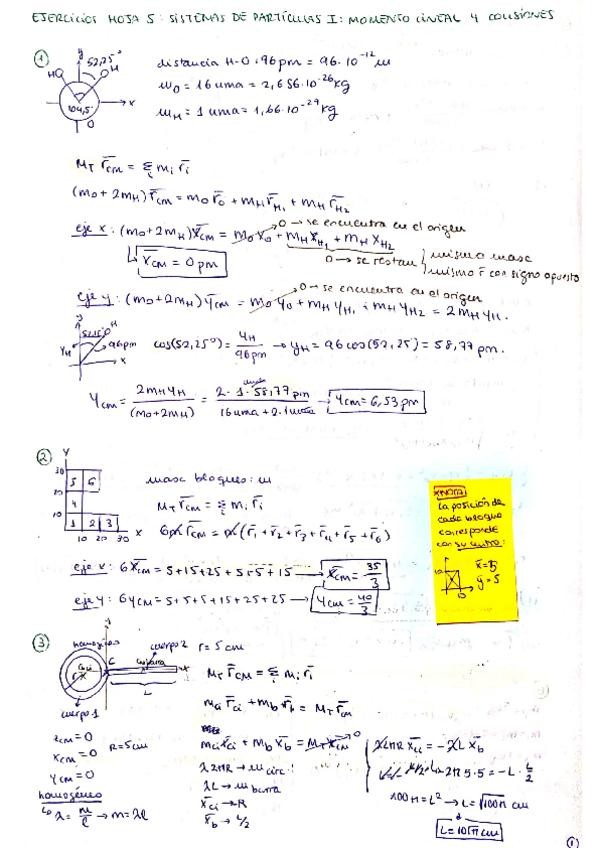 EJERCICIOS HOJA 5: SISTEMAS DE PARTÍCULAS I: MOMENTO LINEAL Y COLISIONES
①
y
52,25°
HO
OH
104,5°
x
O
distancia H-O: 96pm = 96·10⁻¹² m
m_O = 16 uma = 2,656·10⁻²⁶ kg
m_H = 1 uma = 1,66·10⁻²⁷ kg
M_T r̄_CM = Σ m_i r̄_i
(m_O + 2m_H) r̄_CM = m_O r̄_O + m_H r̄_H₁ + m_H r̄_H₂
eje x: (m_O + 2m_H) x̄_CM = m_O x_O + m_H x_H₁ + m_H x_H₂
0 → se encuentra en el origen
0 → se restan
misma masa
mismo r̄ con signo opuesto
x̄_CM = 0 pm
eje y: (m_O + 2m_H) ȳ_CM = m_O y_O + m_H y_H₁ + m_H y_H₂ = 2m_H y_H.
0 → se encuentra en el origen
y
52,25°
H
y_H
96pm
x
cos(52,25°) = y_H / 96pm → y_H = 96 cos(52,25) = 58,77 pm.
y_CM = 2m_H y_H / (m_O + 2m_H) = 2·1·58,77 pm / 16uma + 2·1uma → y_CM = 6,53 pm
②
y
30
20
10
5 6
4
1 2 3
10 20 30 x
masa bloques: m
M_T r̄_CM = Σ m_i r̄_i
6m r̄_CM = m (r̄₁ + r̄₂ + r̄₃ + r̄₄ + r̄₅ + r̄₆)
eje x: 6x̄_CM = 5+15+25+5+5+15 → x̄_CM = 35/3
eje y: 6y_CM = 5+5+5+15+25+25 → y_CM = 40/3
*NOTA
La posición de
cada bloque
corresponde
con su centro:
10
10
x̄=5
ȳ=5
③
homogéneo
cuerpo 2
r = 5 cm
L
cuerpo 1
z_CM = 0
x_CM = 0
y_CM = 0
R = 5cm
homogéneo
λ = m/l → m = λl
M_T r̄_CM = Σ m_i r̄_i
m_ci r̄_ci + m_b r̄_b = M_T r̄_CM
m_ci x̄_ci + m_b x̄_b = M_T x̄_CM → 0
λ2πR → m circ.
λL → m barra
x̄_ci → R
x̄_b → L/2
λ2πR x̄_ci = -λL x̄_b
2π5·5 = -L·L/2
100π = L² → L = √100π cm
L = 10√π cm
①